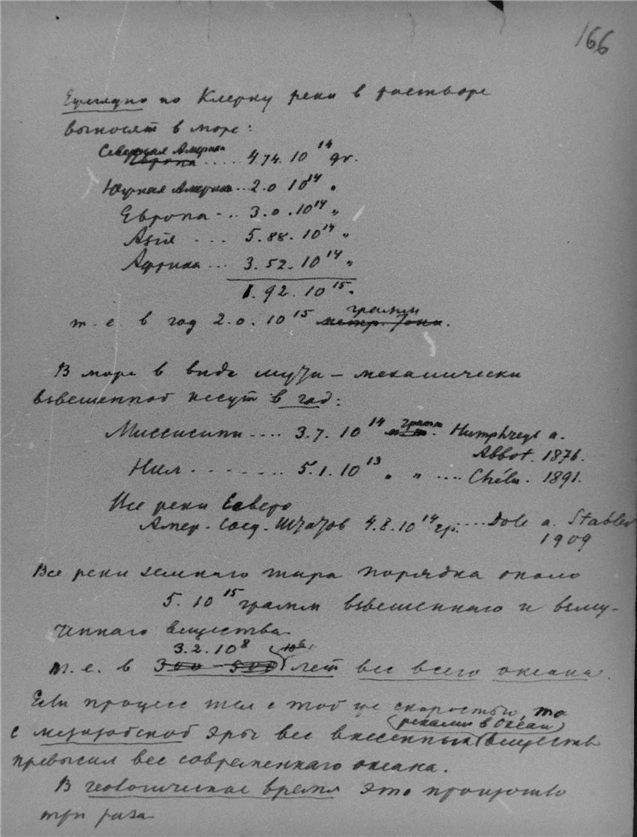 166
Ежегодно по Кларку реки в растворе
выносят в море:
Северная Америка
Европа .... 4.74. 10 14 гр.
Южная Америка... 2.0 10 14 "
Европа ... 3.0. 10 14 "
Азия .... 5.88. 10 14 "
Африка ... 3.52. 10 14 "
1.92. 10 15 "
грамм
т.е. в год 2.0. 10 15 метр. тонн.
В море в виде мути — механически
взвешенной несут в год:
Миссисипи .... 3.7. 10 14 грамм Humphreys a.
Abbot. 1876.
Нил ........ 5.1. 10 13 " " .... Chélu. 1891.
Все реки Северо
Амер. Соед. Штатов 4.8. 10 14 гр. .... Dole a. Stabler
1909
Все реки земного шара порядка около
5. 10 15 грамм взвешенного и взму-
ченного вещества
3.2. 10 8
т.е. в 300 - 500 лет вес всего океана.
Если процесс шел с той же скоростью, то
(реками в океан)
с мезозойской эры вес внесенных веществ
превысил вес современного океана.
В геологическое время это произошло
три раза